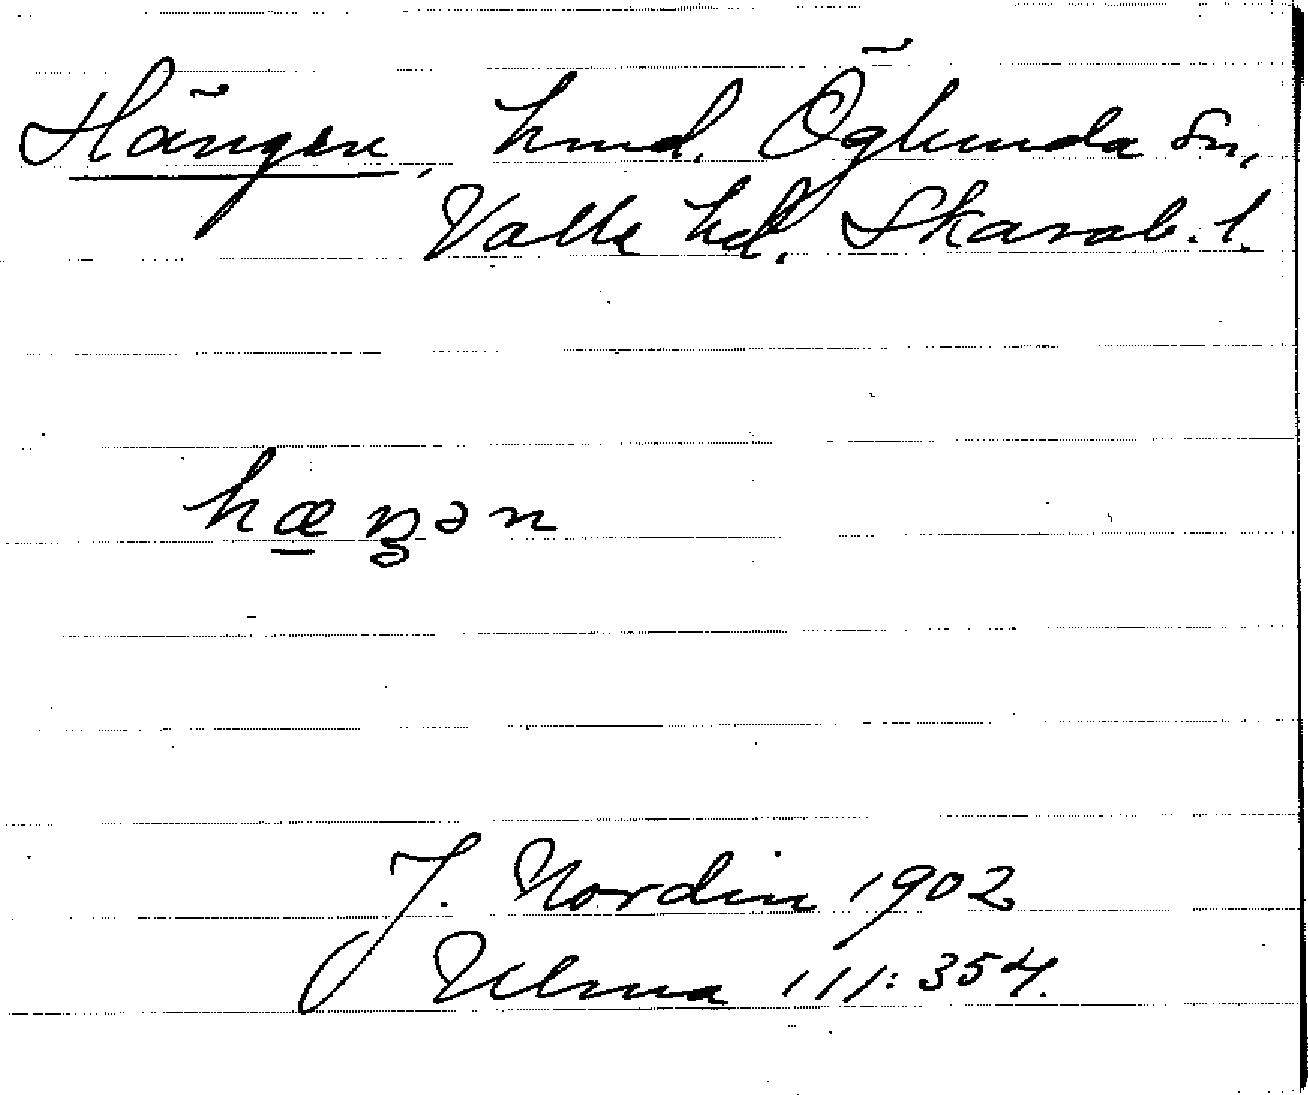 Hängen, hmd. Öglunda sn,
Valle hd. Skarab. l.
hæŋən
J. Nordin 1902
Ulma 111:354.